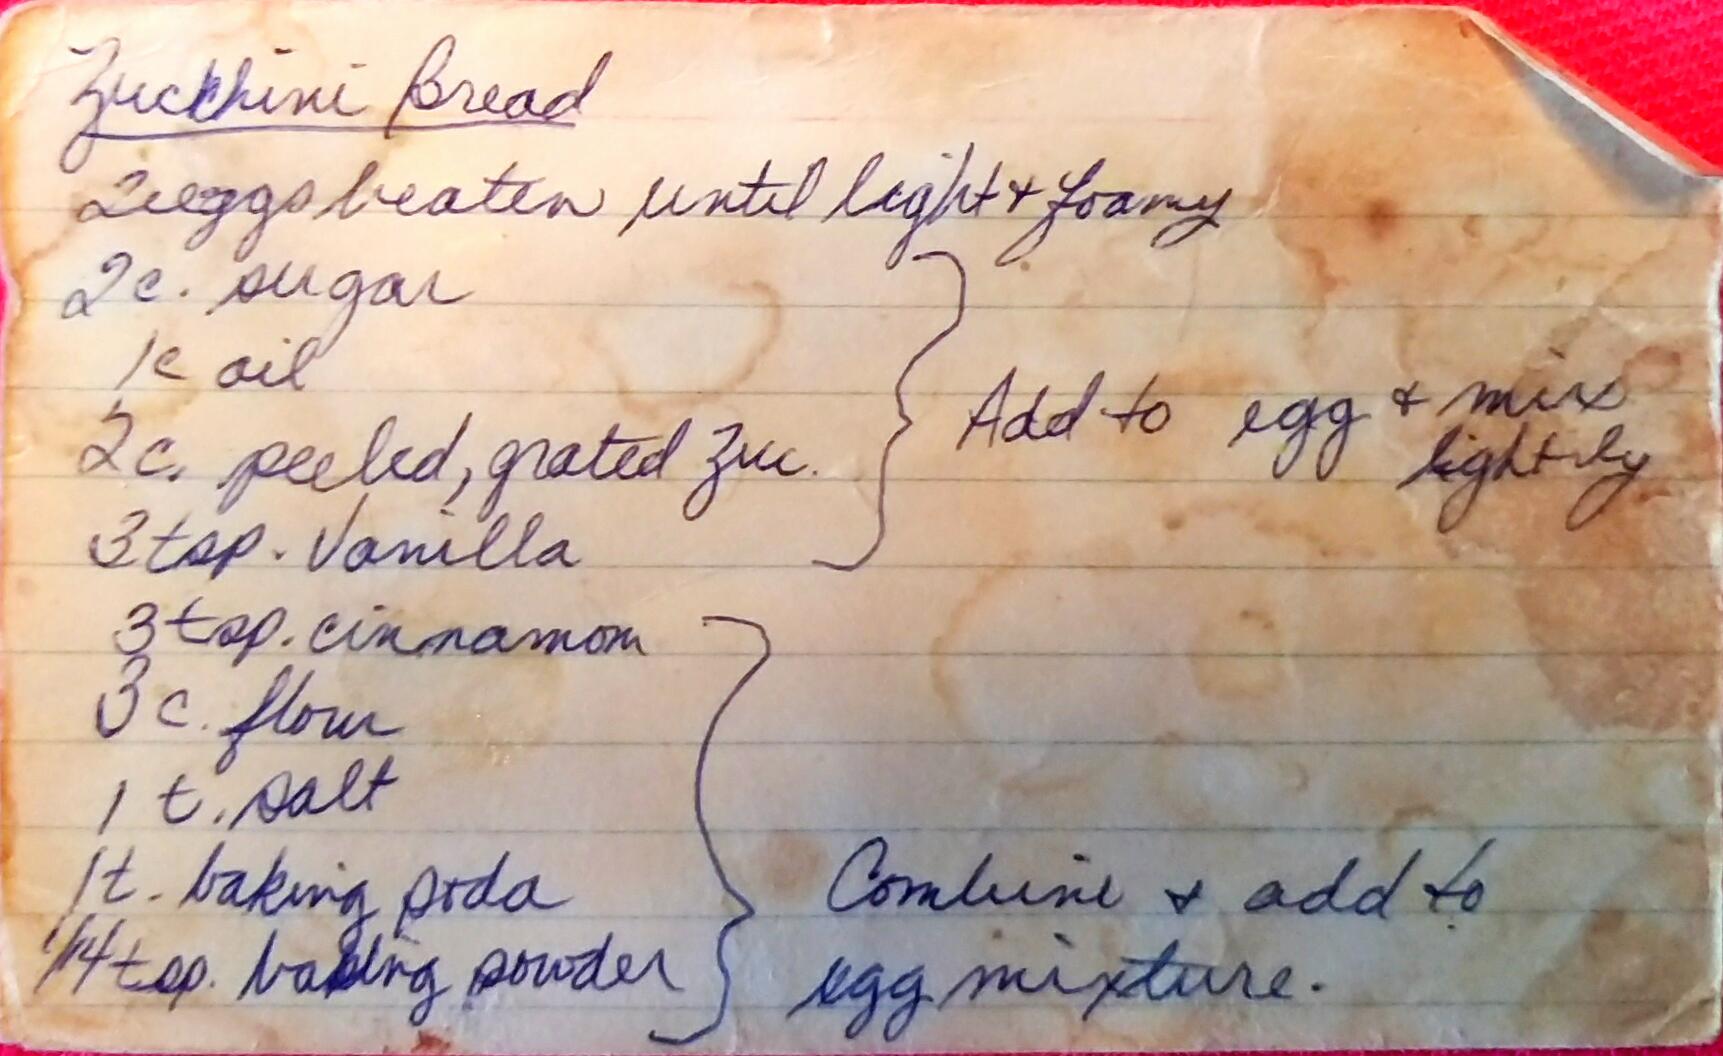 Zucchini Bread
2 eggs beaten until light + foamy
2c. sugar
1c oil
2c. peeled, grated Zuc.
3 tsp. Vanilla
Add to egg + mix
lightly
3 tsp. cinnamom
3 c. flour
1 t. salt
1t. baking soda
1/4 tsp. baking powder
Combine + add to
egg mixture.